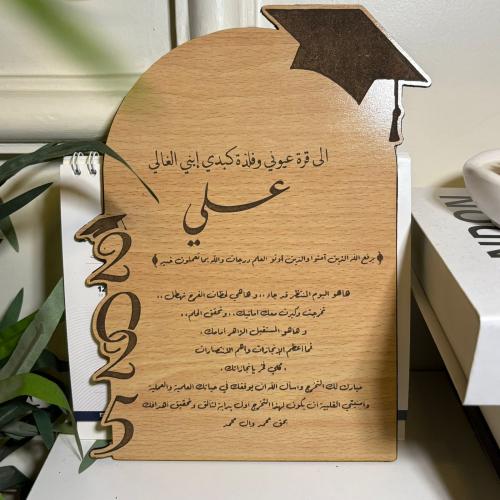 الى قرة عيوني وفلذة كبدي إبني الغالي
علي
﴿ يرفع الله الذين آمنوا والذين أوتوا العلم درجات والله بما تعملون خبير ﴾
هاهو اليوم المنتظر قد جاء ،، وهاهي لحظات الفرح تهطل ،،
تخرجت وكبرت معك امانيك،، وتحقق الحلم،،
وهاهو المستقبل الزاهر أمامك،
فما أعظم الإنجازات وأهم الانتصارات
، كلي فخر بإنجازاتك،
مبارك لك التخرج وأسأل الله ان يوفقك في حياتك العلمية والعملية
وامنيتي القلبية ان يكون لهذا التخرج اول بداية لتألق وتحقيق اهدافك
بحق محمد وال محمد
2025